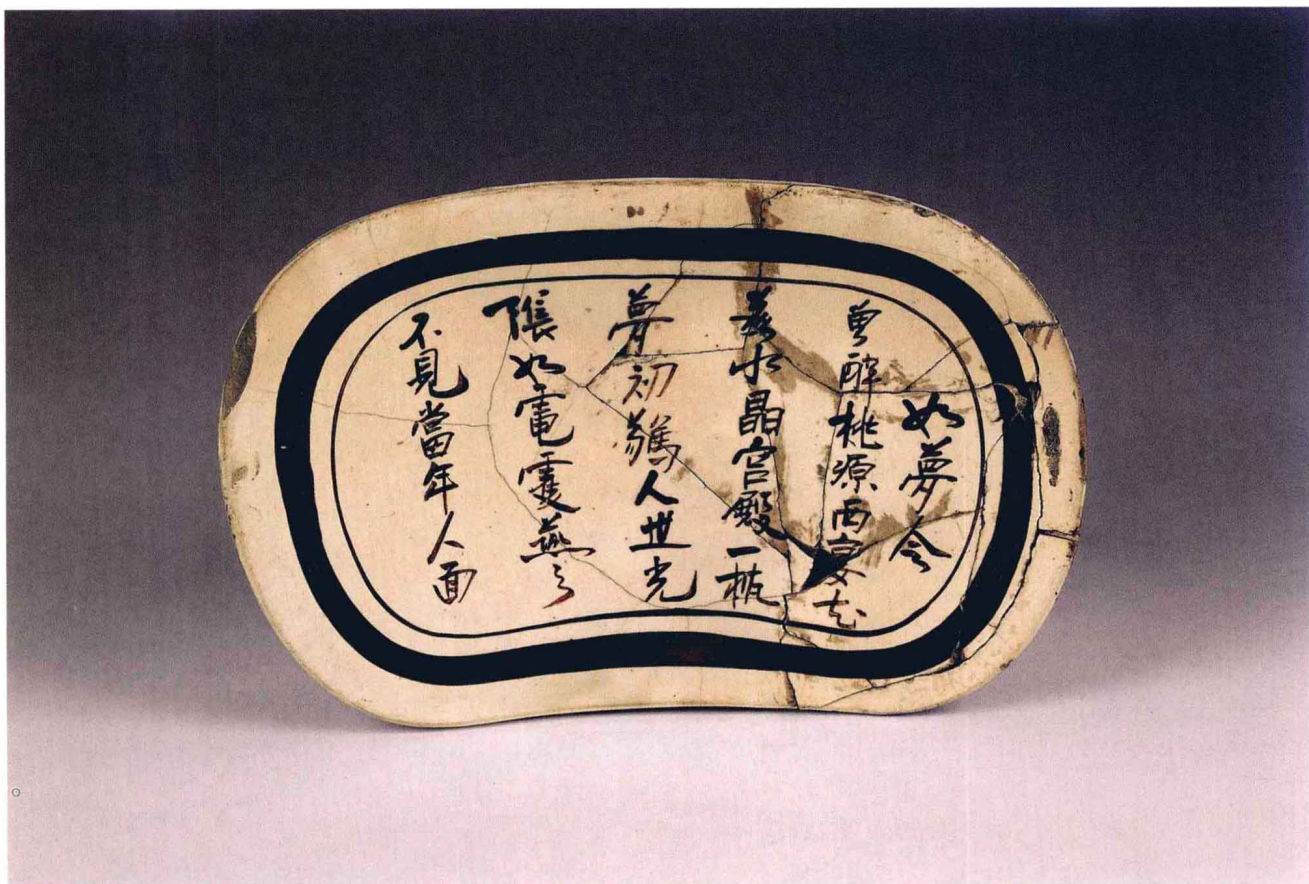 如夢令
曾醉桃源西宴花
落水晶宮殿一枕
夢初驚人世光
陰如電雙燕〻
不見當年人面